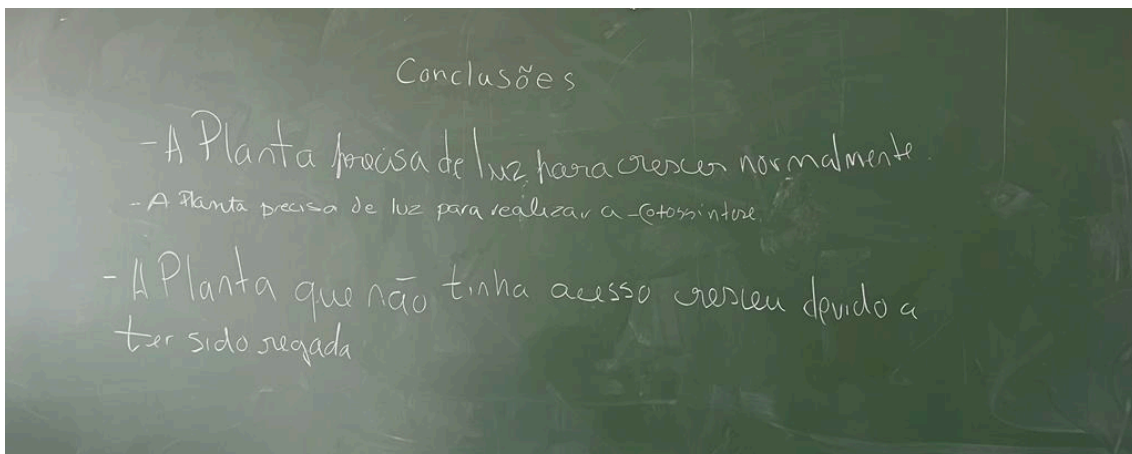 Conclusões
- A Planta precisa de luz para crescer normalmente.
- A Planta precisa de luz para realizar a fotossintese.
- A Planta que não tinha acesso cresceu devido a
ter sido regada